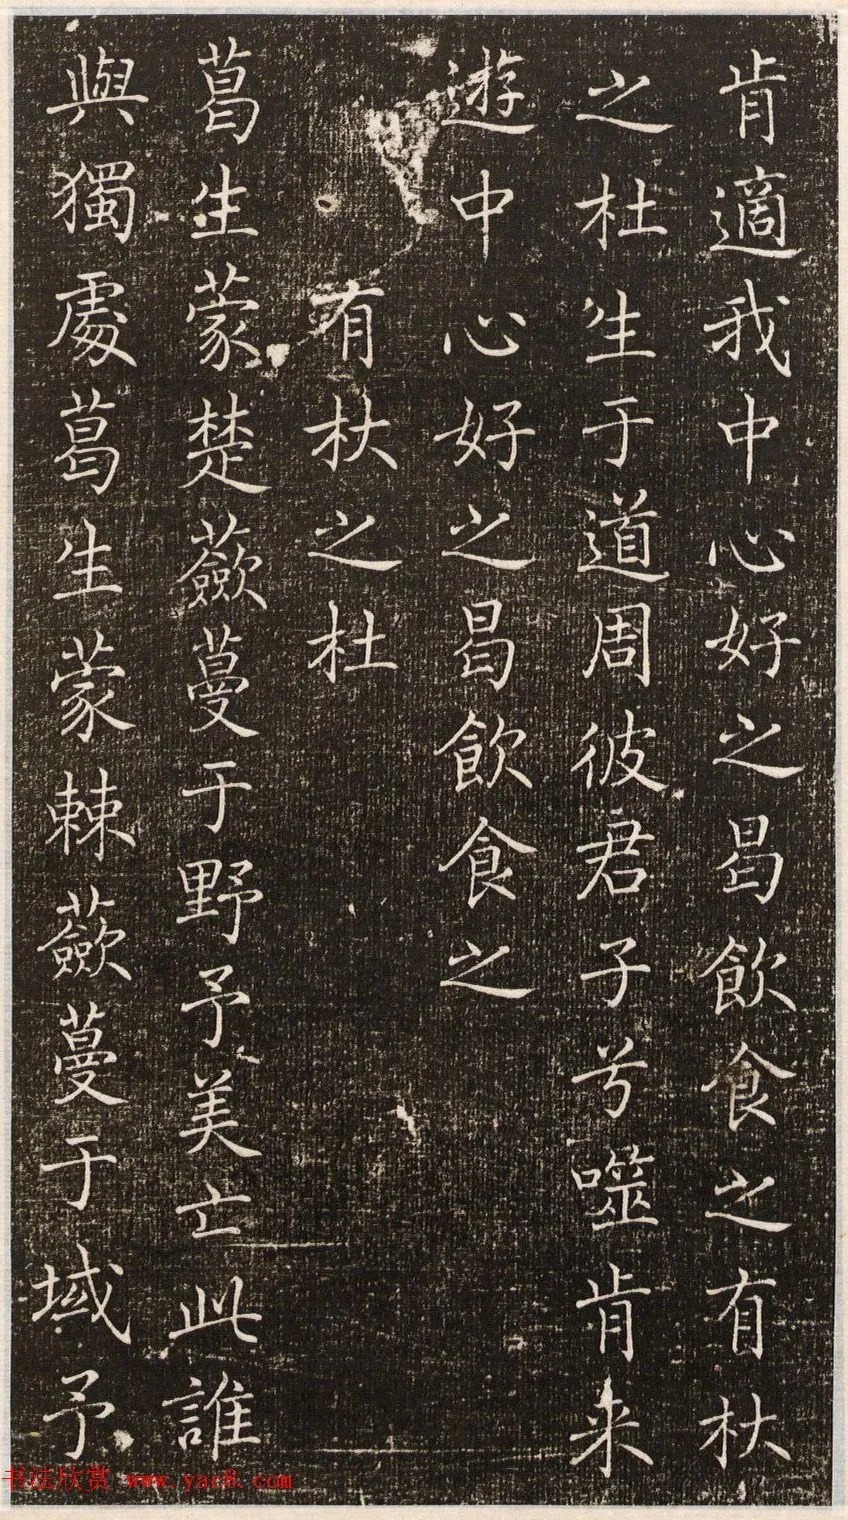 肯適我中心好之曷飲食之有杕
之杜生于道周彼君子兮噬肯来
遊中心好之曷飲食之
有杕之杜
葛生蒙楚蘞蔓于野予美亡此誰
與獨處葛生蒙棘蘞蔓于域予
书法欣赏 www.yac8.com